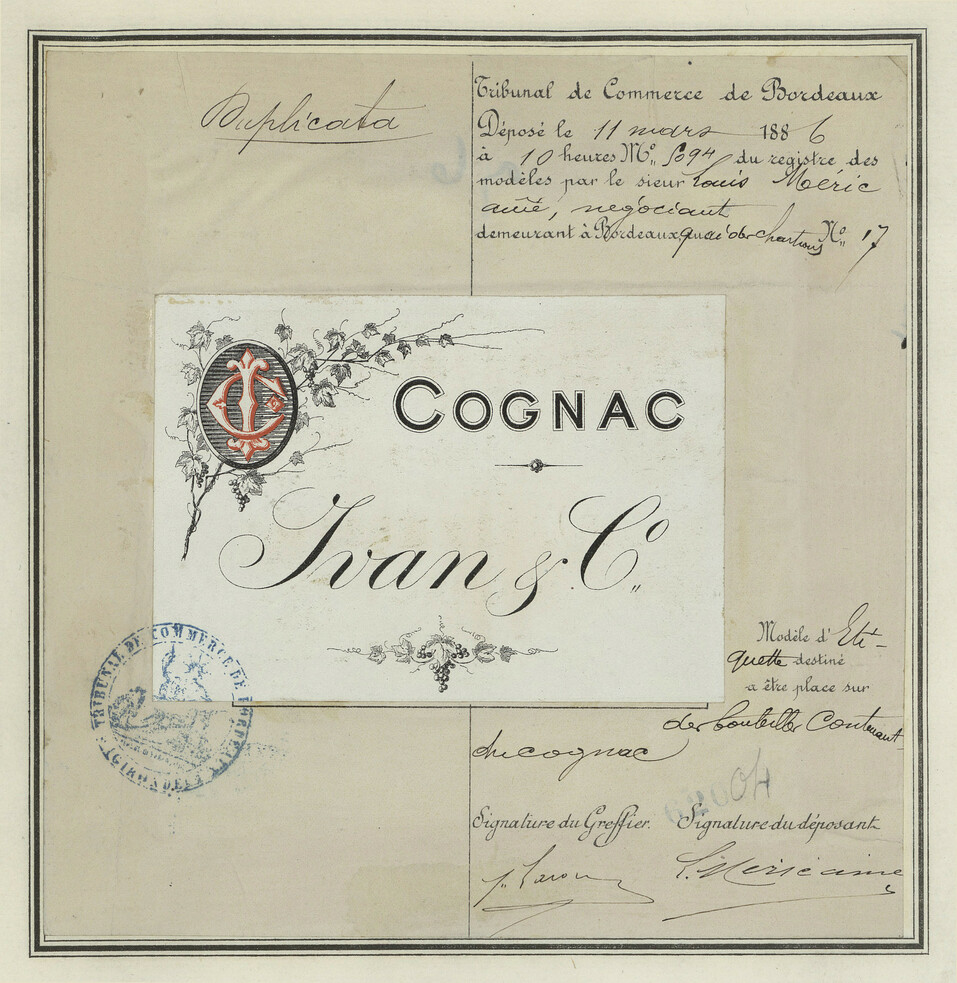 Duplicata
Tribunal de Commerce de Bordeaux
Déposé le 11 mars 1886
à 10 heures No. 5094 du registre des
modèles par le sieur Louis Méric
ainé, négociant
demeurant à Bordeaux, quai des Chartrons No. 17
IC
COGNAC
Ivan & Co.
TRIBUNAL DE COMMERCE DE BORDEAUX
(GIRONDE)
Modèle d'Eti-
quette destiné
à être place sur
des bouteilles Contenant
du cognac
Signature du Greffier. Signature du déposant
L. Méric ainé